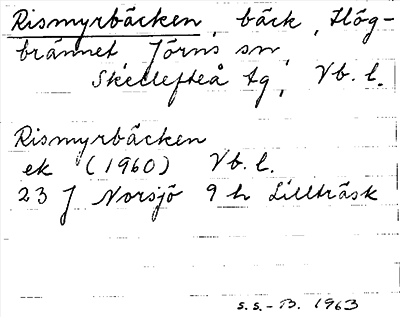 Rismyrbäcken, bäck, Hög-
brännet, Jörns sn,
Skellefteå tg, Vb. l.
Rismyrbäcken
ek (1960) Vb. l.
23 J Norsjö 9 h Lillträsk
S.S.-B. 1963